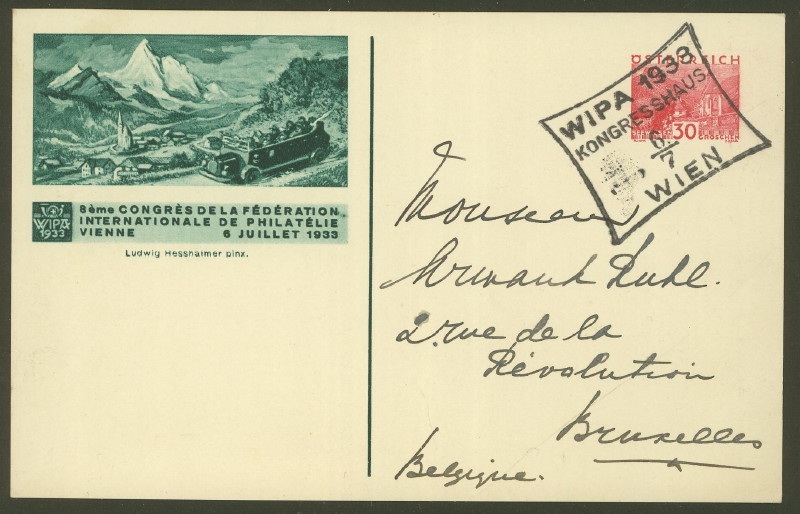 8ème CONGRÈS DE LA FÉDÉRATION
INTERNATIONALE DE PHILATÉLIE
VIENNE 6 JUILLET 1933
WIPA
1933
Ludwig Hesshaimer pinx.
ÖSTERREICH
30
GROSCHEN
WIPA 1933
KONGRESSHAUS
6/7
WIEN
Monsieur
Armand Ruhl.
2. rue de la
Révolution
Bruxelles
Belgique.